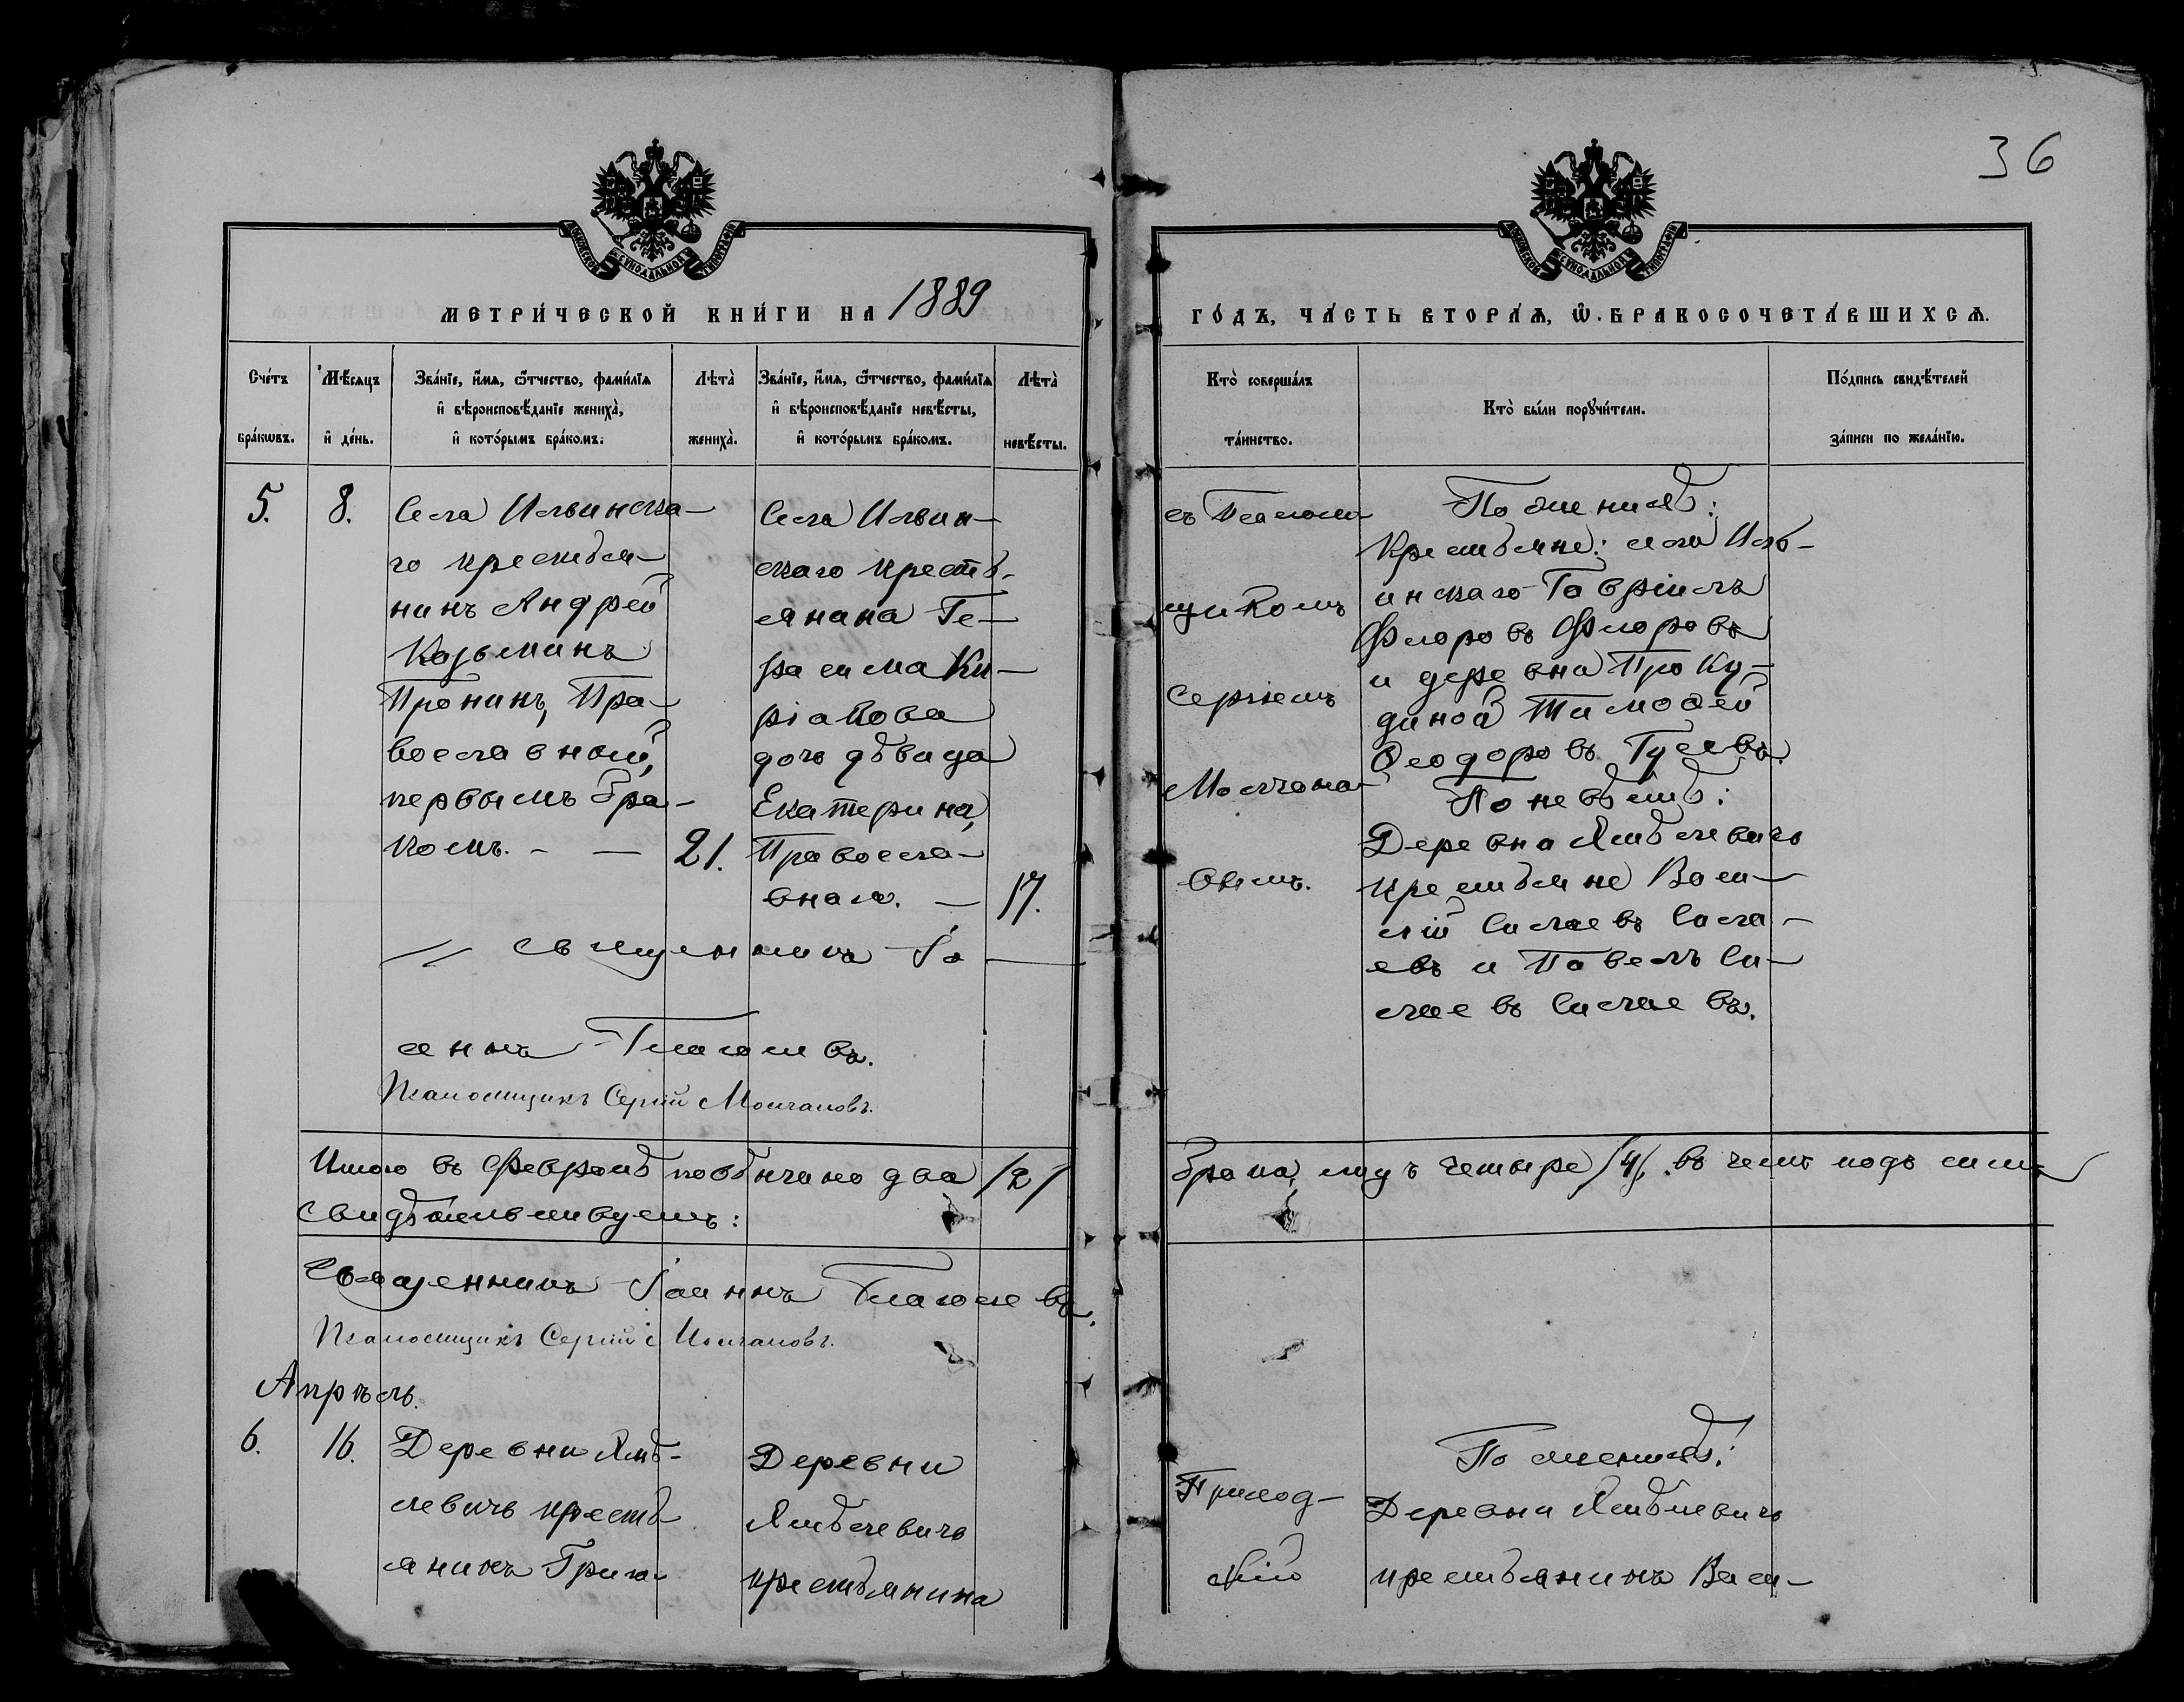 36
МОСКОВСКОЙ СУНОДАЛЬНОЙ ТИПОГРАФІИ
МОСКОВСКОЙ СУНОДАЛЬНОЙ ТИПОГРАФІИ
МЕТРИ́ЧЕСКОЙ КНИ́ГИ НА 1889
ГО́ДЪ, ЧА́СТЬ ВТОРА́Ѧ, Ѿ. БРАКОСОЧЕТА́ВШИХСѦ.
Сче́тъ бра́кѡвъ.
Мѣ́сѧцъ и҆ де́нь.
Зва́нїе, и҆́мѧ, ѻ҆́тчество, фами́лїѧ
и҆ вѣроисповѣ́данїе жениха̀,
и҆ кото́рымъ бра́комъ.
Лѣта̀ жениха̀.
Зва́нїе, и҆́мѧ, ѻ҆́тчество, фами́лїѧ
и҆ вѣроисповѣ́данїе невѣ́сты,
и҆ кото́рымъ бра́комъ.
Лѣта̀ невѣ́сты.
Кто̀ соверша́лъ та́инство.
Кто̀ бы́ли порꙋчи́тели.
По́дпись свидѣ́телей
за́писи по жела́нїю.
5.
8.
Села Ильинска-
го крестья-
нинъ Андрей
Козьминъ
Пронинъ, Пра-
вославный,
первымъ бра-
комъ. - —
21.
Села Ильин-
скаго кресть-
янина Ге-
расима Ки-
ріакова
дочь дѣвица
Екатерина,
Правосла-
вная. —
17.
съ Псалом-
щикомъ
Сергіемъ
Молчано-
вымъ.
По женихѣ:
Крестьяне: села Иль-
инскаго Гавріилъ
Флоровъ Флоровъ
и деревни Проку-
диной Тимоѳей
Ѳеодоровъ Гусевъ.
По невѣстѣ:
Деревни Ямѣлевичь
крестьяне Васи-
лій Силаевъ Сила-
евъ и Павелъ Си-
лаевъ Силаевъ.
Священникъ Іо-
аннъ Глаголевъ.
Псаломщикъ Сергій Молчановъ.
Итого въ Февралѣ повѣнчано два /2/
брака, лицъ четыре /4/. въ чемъ подъ симъ
свидѣтельствуемъ:
Священникъ Іоаннъ Глаголевъ.
Псаломщикъ Сергій Молчановъ.
Апрѣль.
6.
16.
Деревни Ямѣ-
левичь кресть-
янинъ Григо-
Деревни
Ямѣлевичь
крестьянина
Приход-
скій
По женихѣ:
Деревни Ямѣлевичь
крестьянинъ Васи-